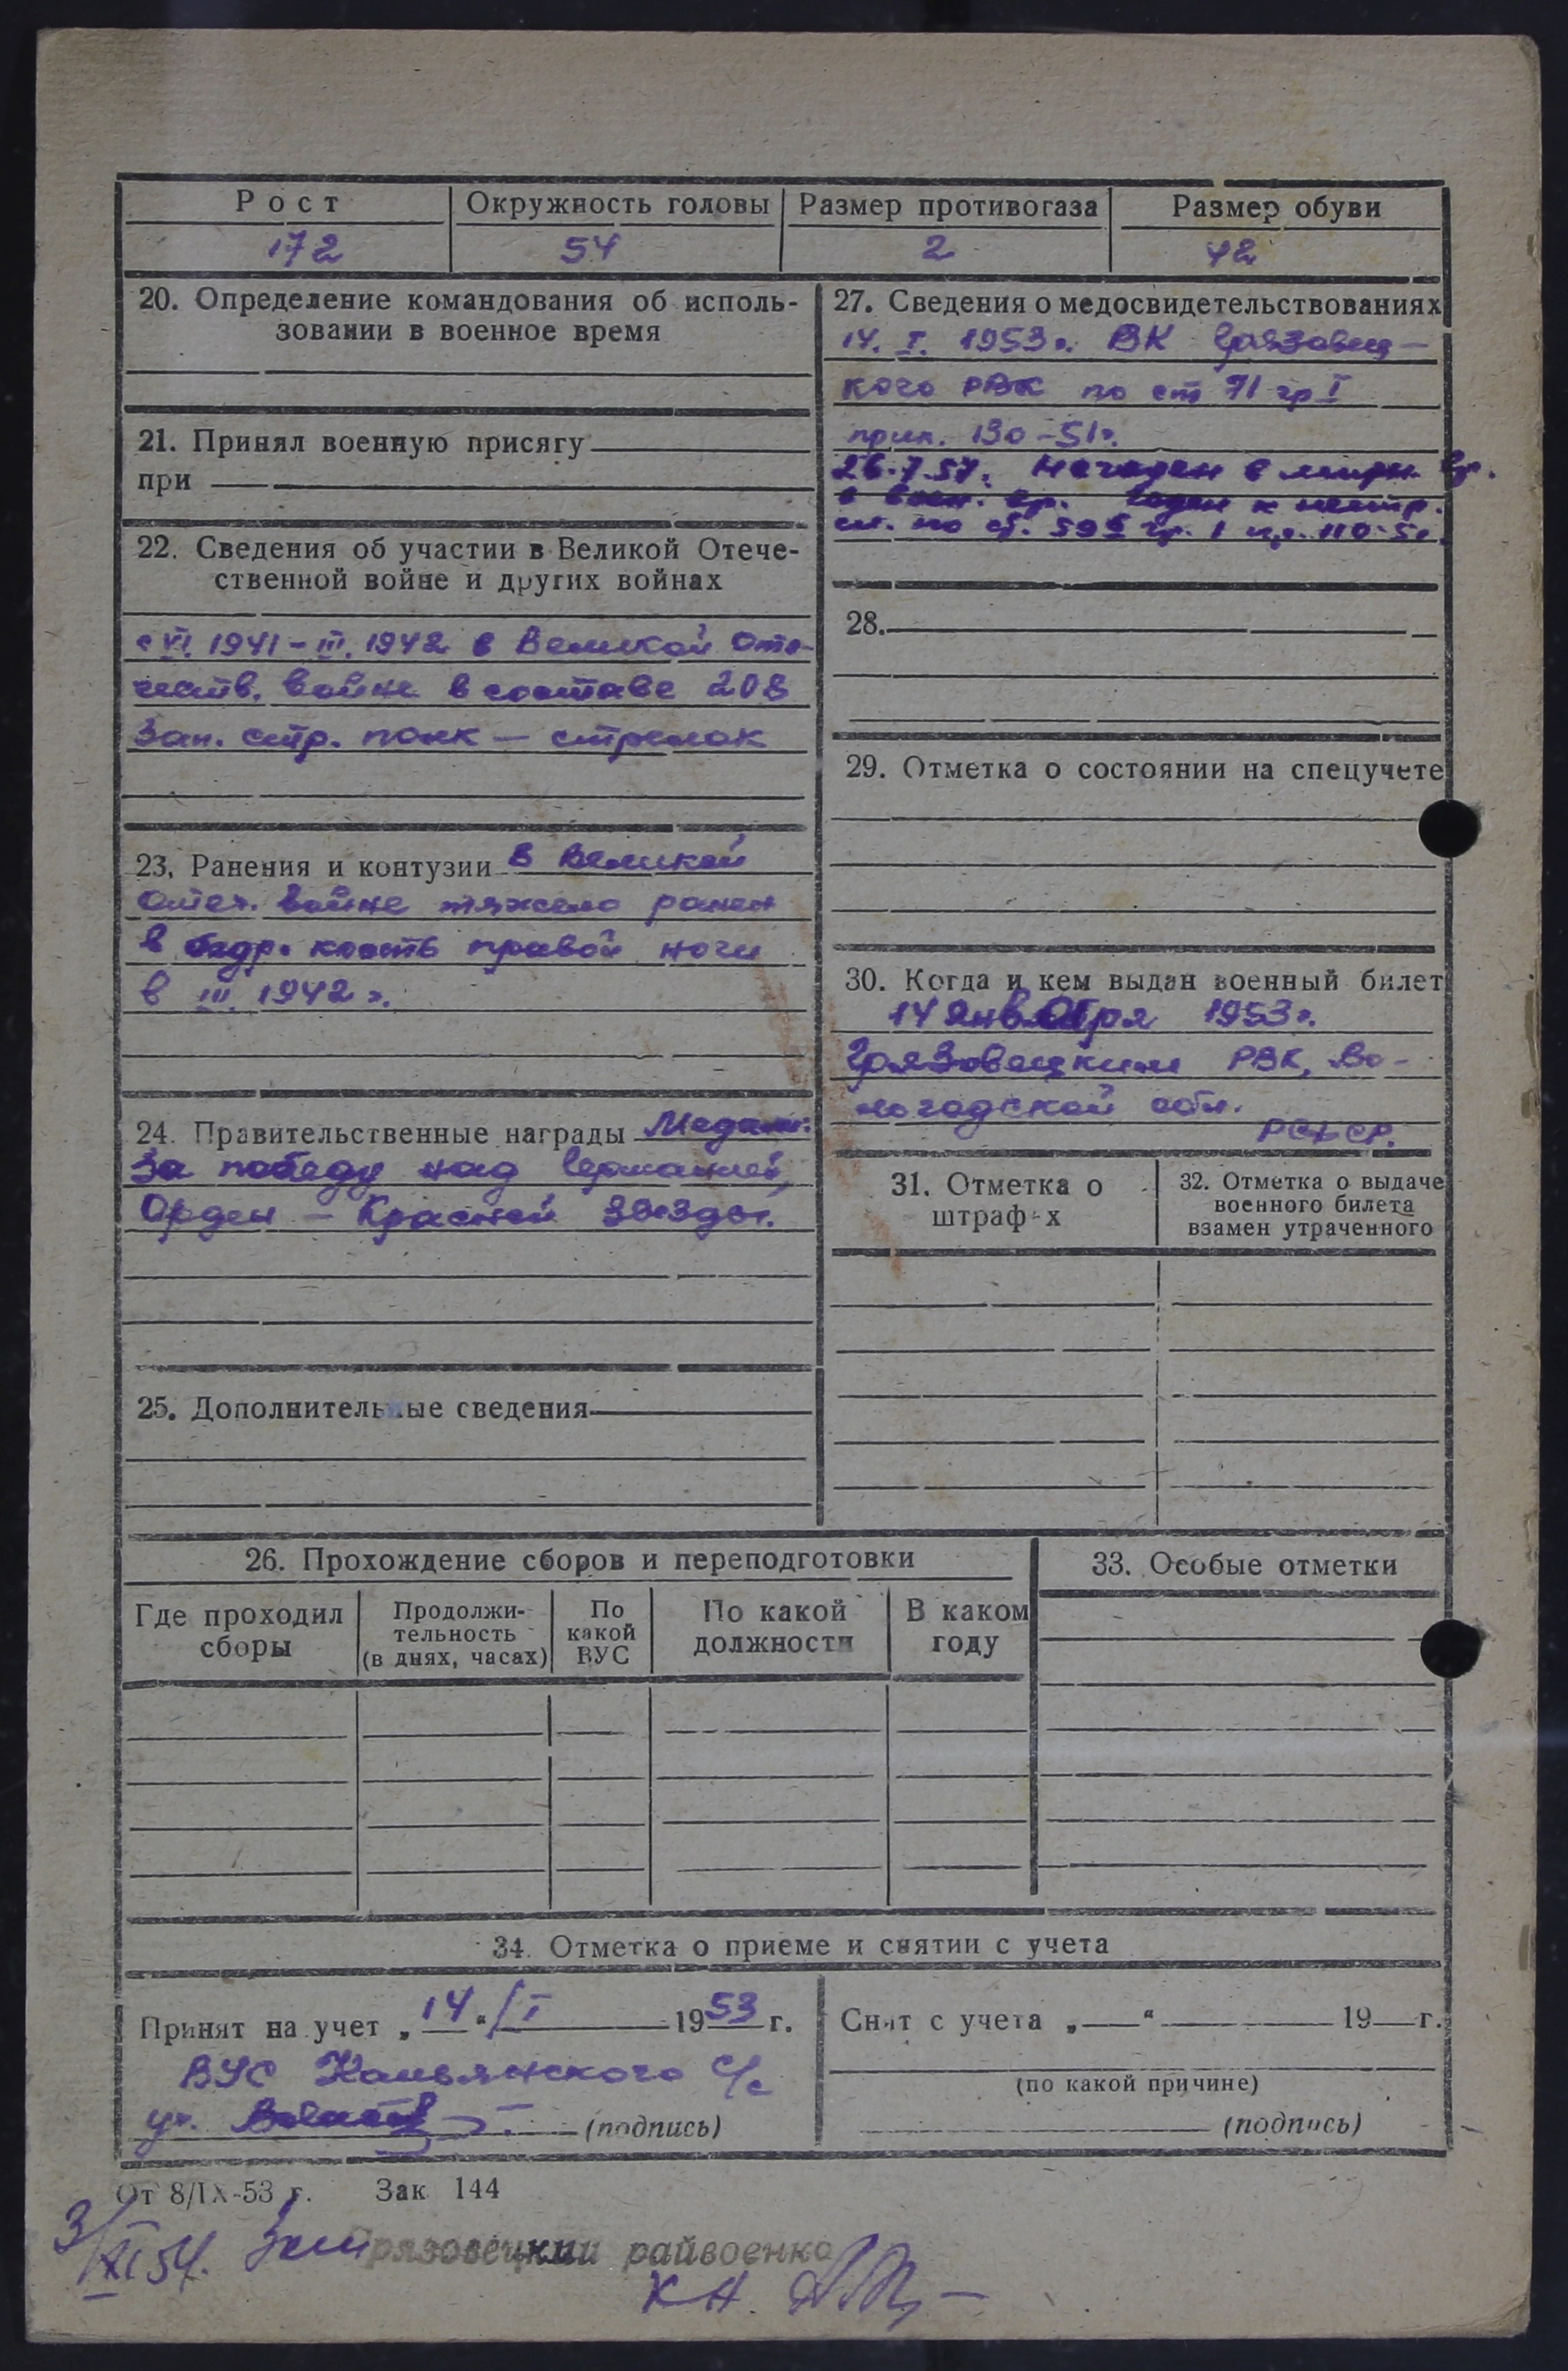 Рост Окружность головы Размер противогаза Размер обуви
172 54 2 42
20. Определение командования об исполь-
зовании в военное время
21. Принял военную присягу
при
22. Сведения об участии в Великой Отече-
ственной войне и других войнах
с VI. 1941 – III. 1942 в Великой Оте-
честв. войне в составе 208
Зап. стр. полк – стрелок
23. Ранения и контузии В Великой
Отеч. войне тяжело ранен
в бедр. кость правой ноги
в III 1942 г.
24. Правительственные награды Медали:
За победу над Германией,
Орден – Красной Звезды.
25. Дополнительные сведения
27. Сведения о медосвидетельствованиях
14. I. 1953 г. ВК Грязовец-
кого РВК по ст 71 гр I
прик. 130-51 г.
26.7.57. Негоден в мирн. вр.
в воен. вр. годен к нестр.
сл. по ст. 59б гр. 1 пр. 110-51.
28.
29. Отметка о состоянии на спецучете
30. Когда и кем выдан военный билет
14 января 1953 г.
Грязовецким РВК, Во-
логодской обл.
РСФСР.
31. Отметка о
штрафах
32. Отметка о выдаче
военного билета
взамен утраченного
26. Прохождение сборов и переподготовки
Где проходил
сборы
Продолжи-
тельность
(в днях, часах)
По
какой
ВУС
По какой
должности
В каком
году
33. Особые отметки
34. Отметка о приеме и снятии с учета
Принят на учет „14“ I 1953 г.
ВУС с/с
(подпись)
Снят с учета „ “ 19 г.
(по какой причине)
(подпись)
От 8/IX-53 г. Зак 144
3/XI 54. Грязовецкий райвоенко